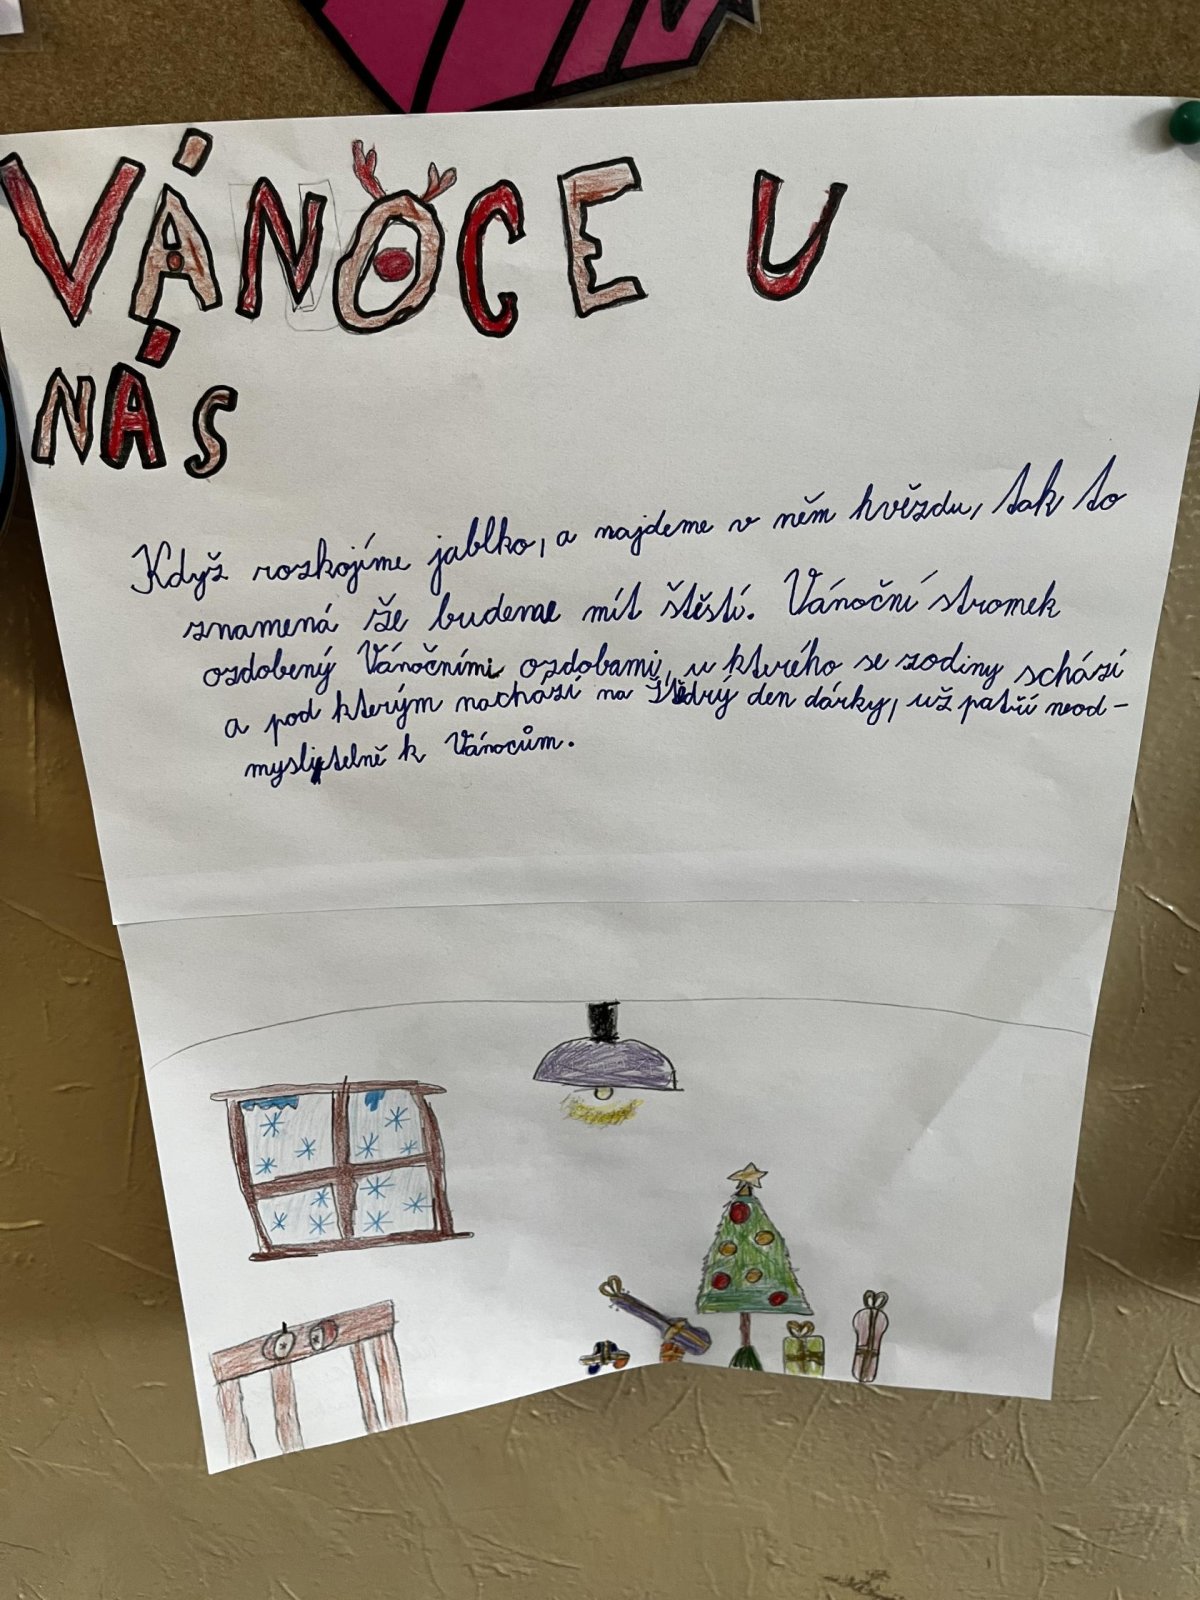 VÁNOCE U
NÁS
Když rozkojíme jablko, a najdeme v něm hvězdu, tak to
znamená že budeme mít štěstí. Vánoční stromek
ozdobený Vánočními ozdobami, u kterého se rodiny schází
a pod kterým nachází na Štědrý den dárky, už patří neod-
myslitelně k Vánocům.